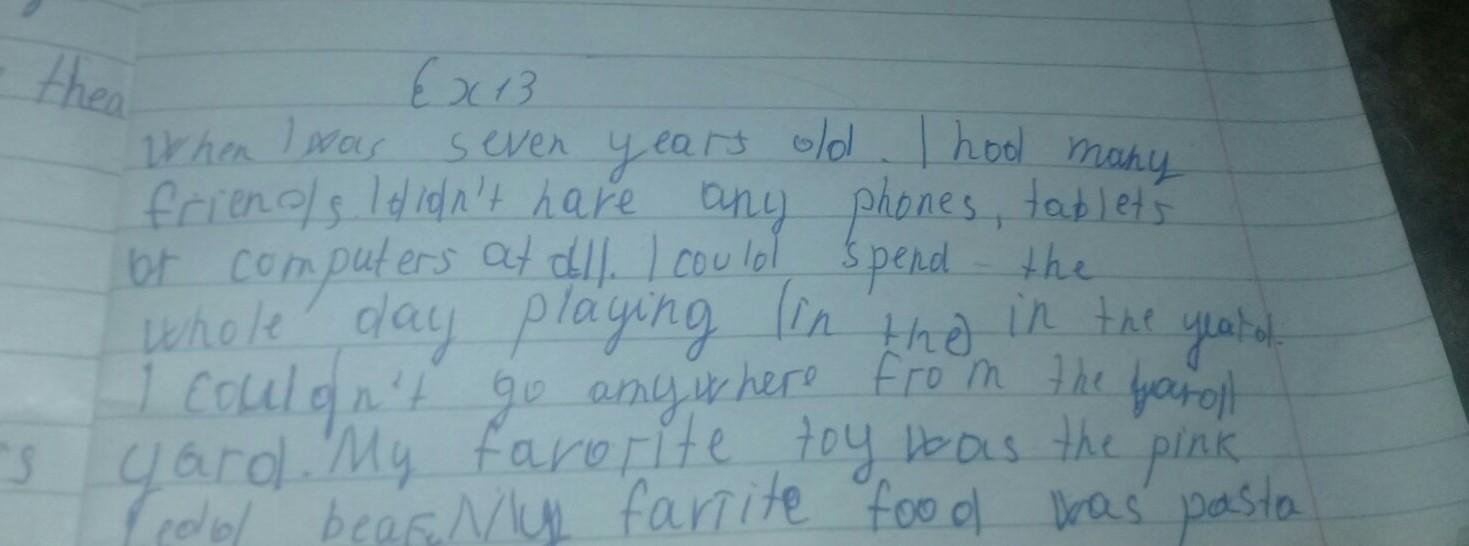 thea
Ex 13
When I was seven years old. I had many
friends. I didn't have any phones, tablets
or computers at all. I could spend the
whole day playing (in the) in the yeard.
I couldn't go anywhere from the
s yard. My favorite toy was the pink
bear. My favrite food was pasta